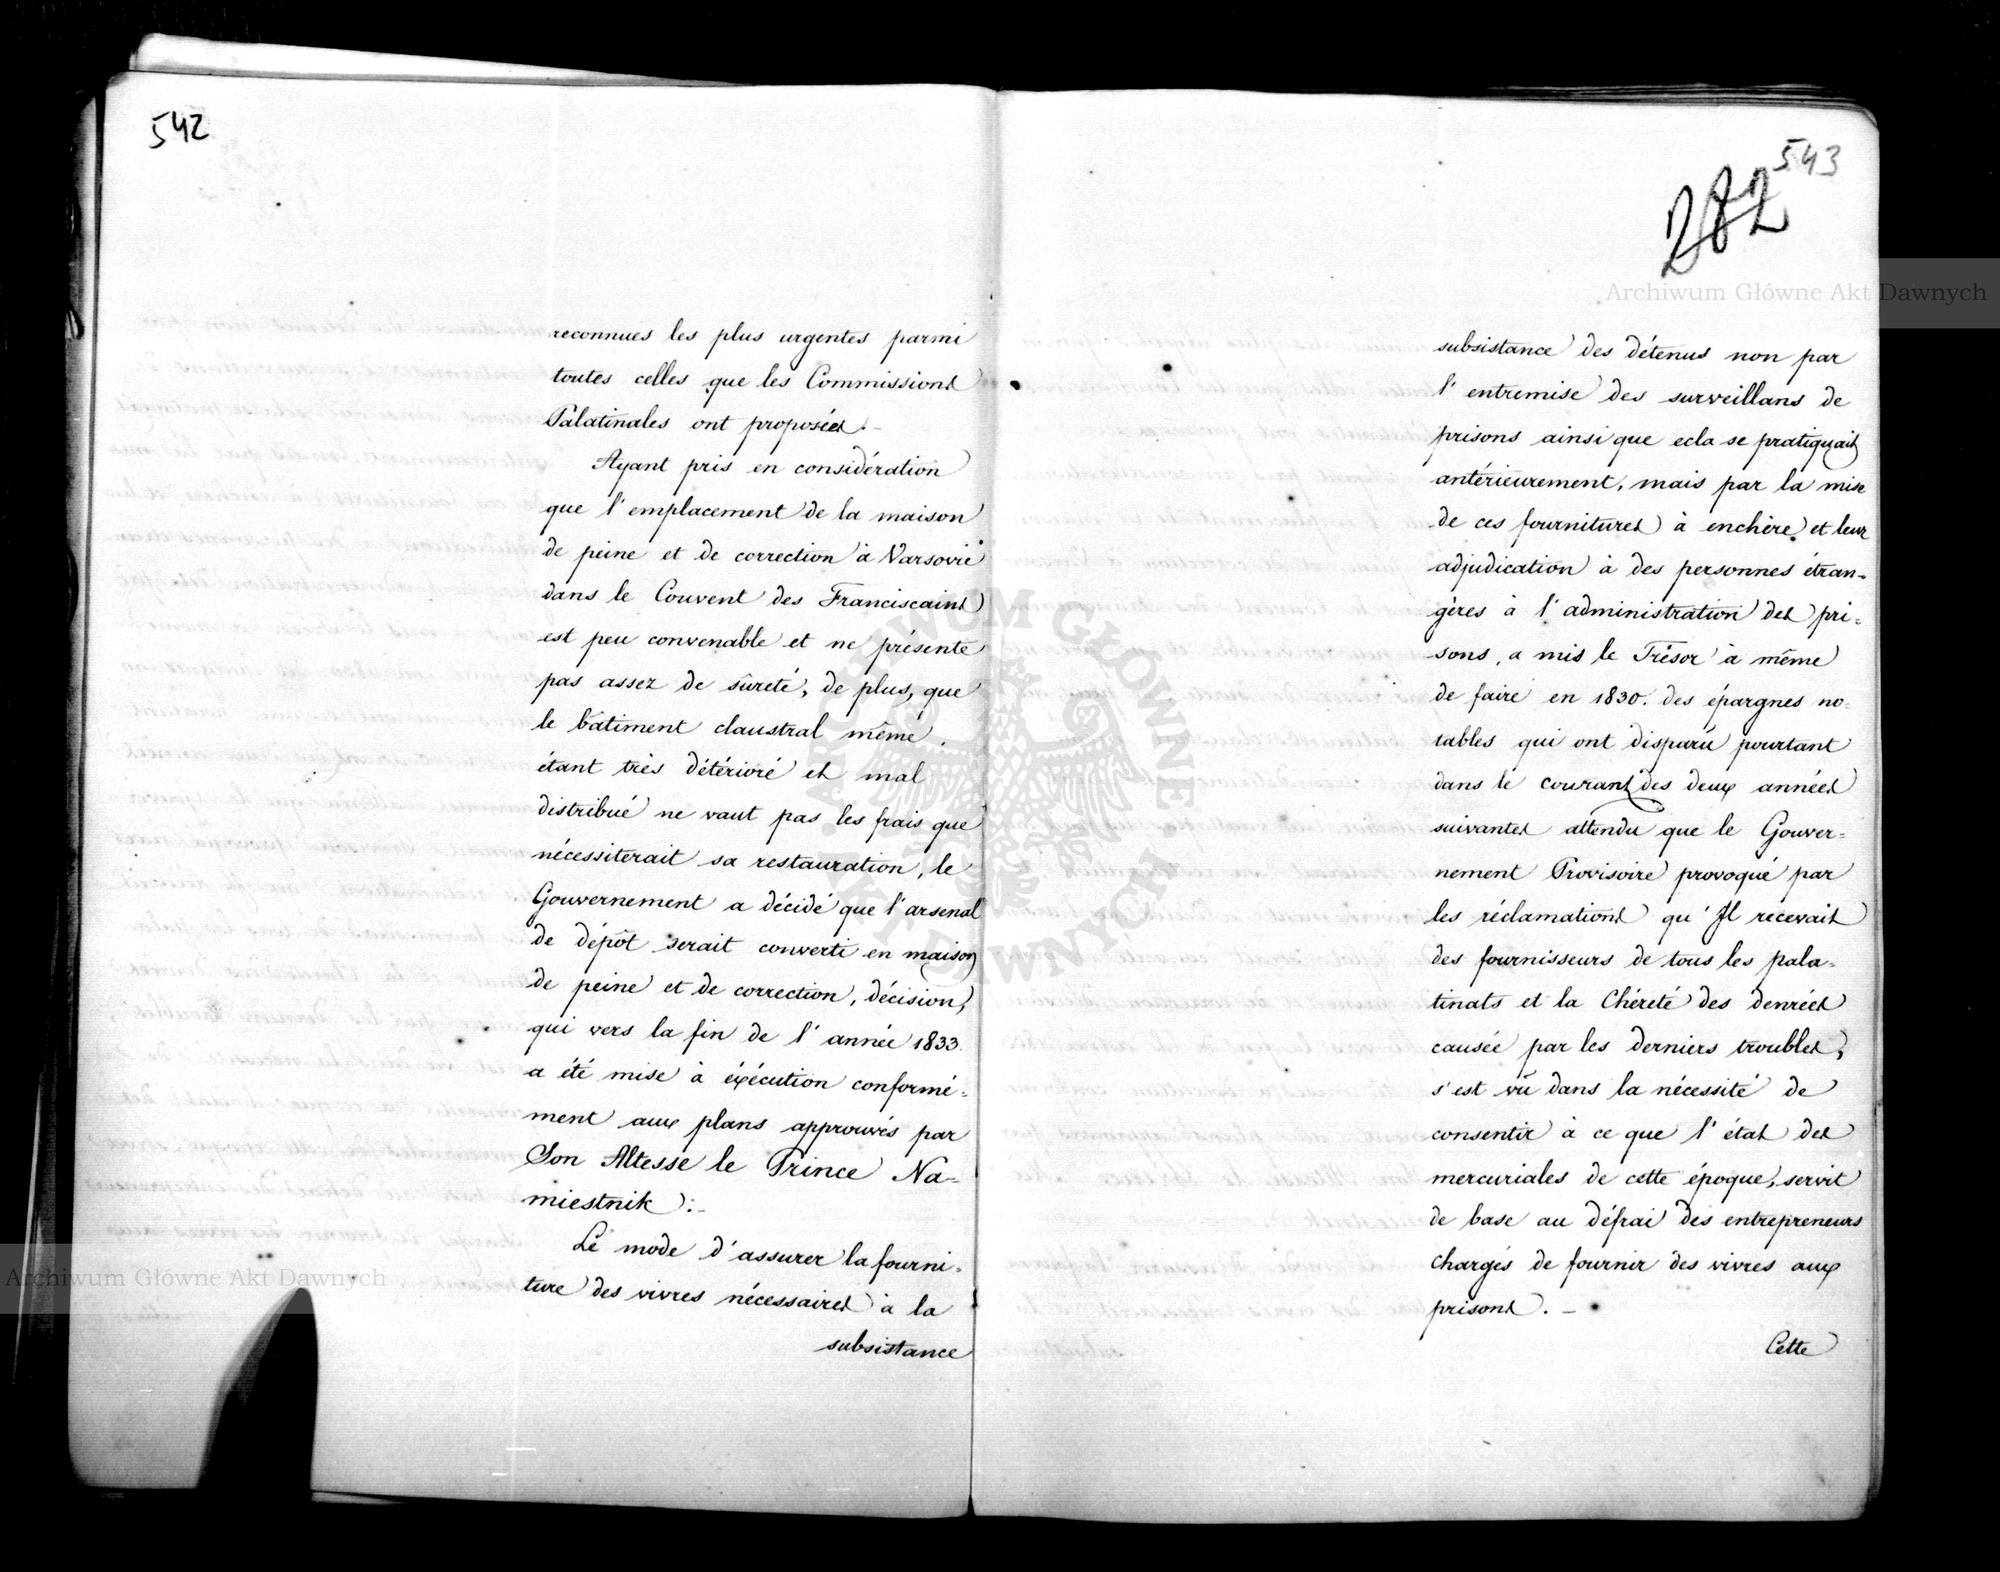 542
reconnues les plus urgentes parmi
toutes celles que les Commissions
Palatinales ont proposées.–
Ayant pris en considération
que l'emplacement de la maison
de peine et de correction à Varsovie
dans le Couvent des Franciscains
est peu convenable et ne présente
pas assez de sûreté, de plus, que
le bâtiment claustral même,
étant très détérioré et mal
distribué ne vaut pas les frais que
nécessiterait sa restauration, le
Gouvernement a décidé que l'arsenal
de dépôt serait converti en maison
de peine et de correction, décision,
qui vers la fin de l'année 1833.
a été mise à éxécution conformé=
ment aux plans approuvés par
Son Altesse le Prince Na=
miestnik:–
Le mode d'assurer la fourni=
ture des vivres nécessaires à la
subsistance
543
282
subsistance des détenus non par
l'entremise des surveillans de
prisons ainsi que cela se pratiquait
antérieurement, mais par la mise
de ces fournitures à enchère et leur
adjudication à des personnes étran=
gères à l'administration des pri=
sons, a mis le Trésor à même
de faire en 1830. des épargnes no=
tables qui ont disparû pourtant
dans le courant des deux années
suivantes attendu que le Gouver=
nement Provisoire provoqué par
les réclamations qu'Il recevait
des fournisseurs de tous les pala=
tinats et la Chéreté des denrées
causée par les derniers troubles,
s'est vû dans la nécessité de
consentir à ce que l'état des
mercuriales de cette époque, servit
de base au défrai des entrepreneurs
chargés de fournir des vivres aux
prisons.–
Cette
Archiwum Główne Akt Dawnych
Archiwum Główne Akt Dawnych
ARCHIWUM GŁÓWNE AKT DAWNYCH